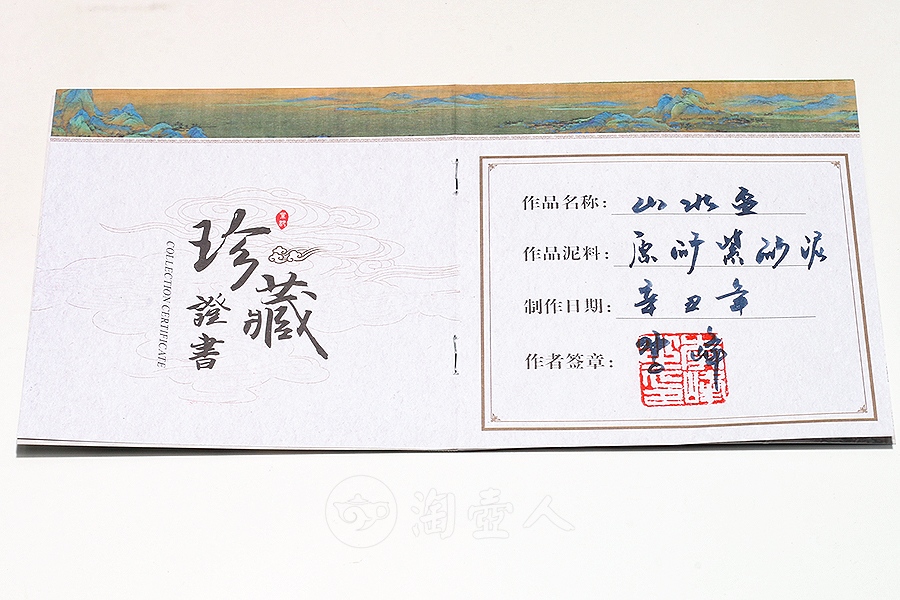 珍藏
證書
COLLECTION CERTIFICATE
作品名称：山水壶
作品泥料：原矿紫砂泥
制作日期：辛丑年
作者签章：
淘壶人